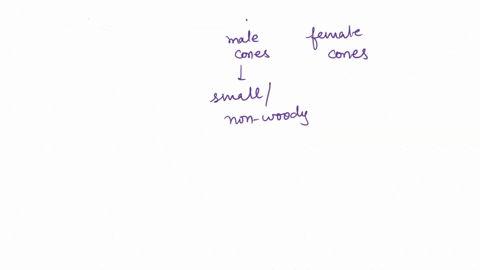 male female
cones cones
↓
small/
non-woody